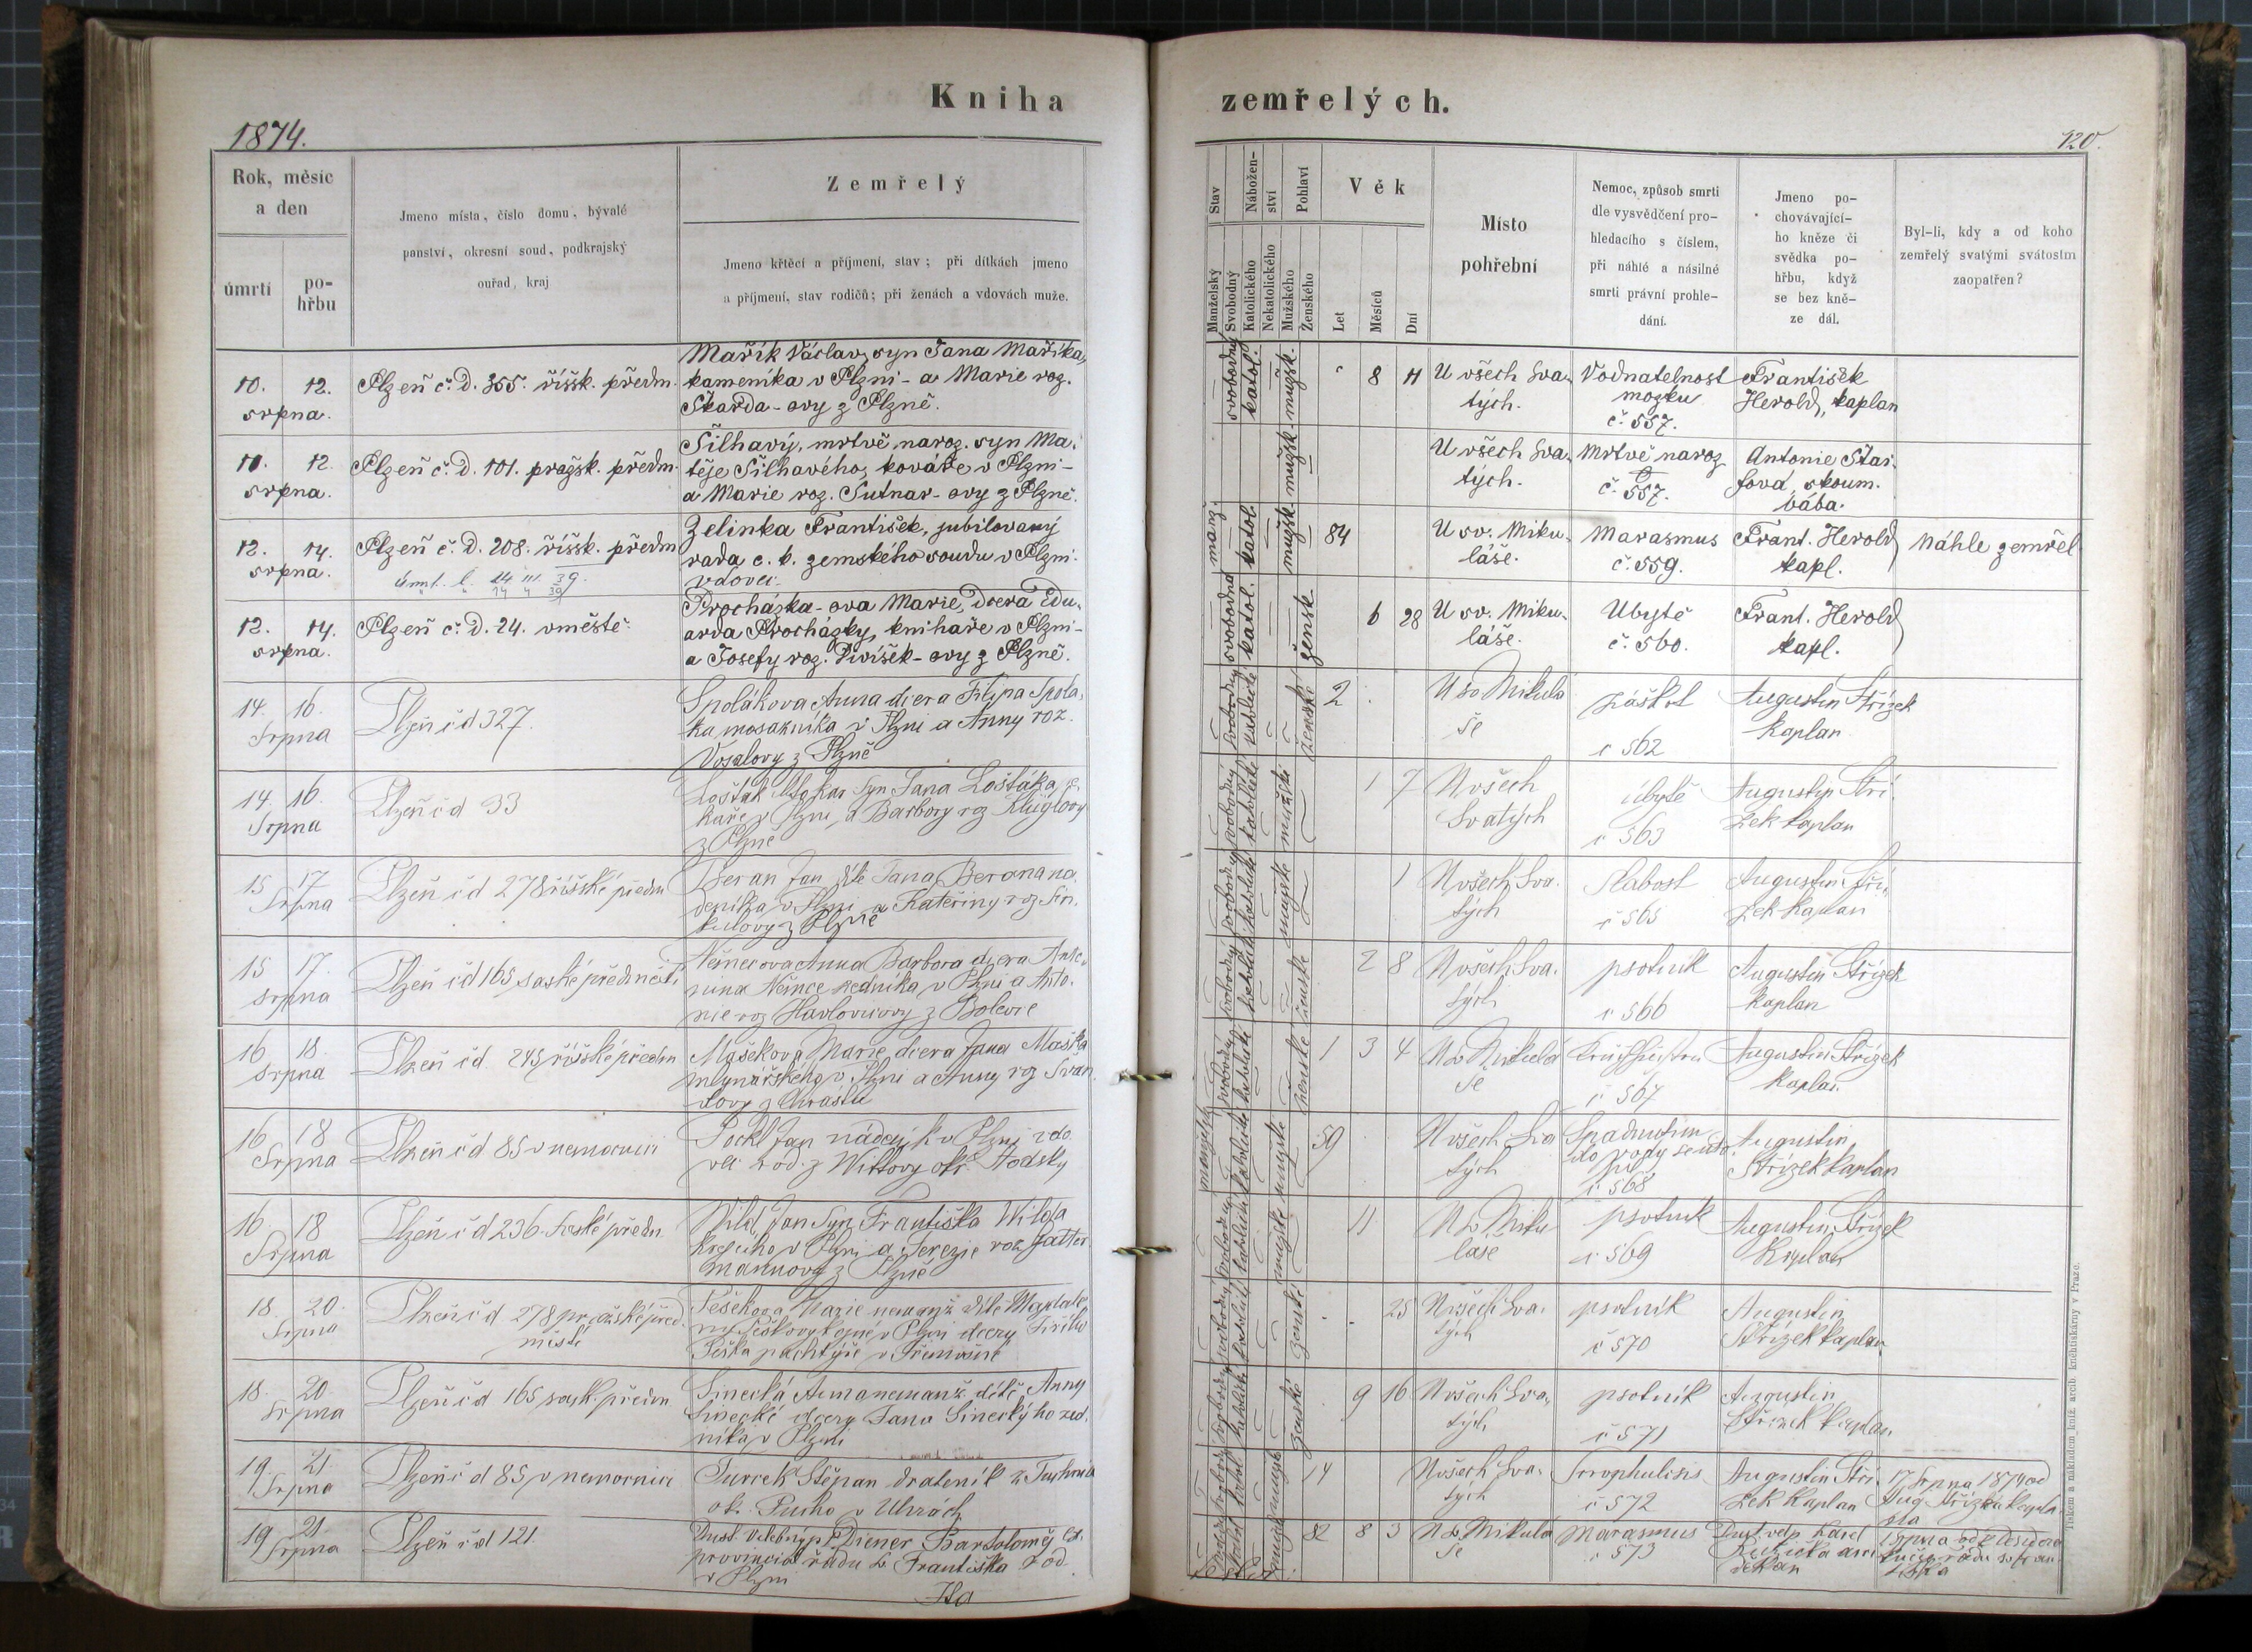 Kniha
zemřelých.
1874.
120.
Rok, měsíc
a den
úmrtí
po-
hřbu
Jmeno místa, číslo domu, bývalé
panství, okresní soud, podkrajský
ouřad, kraj
Zemřelý
Jmeno křtěcí a příjmení, stav; při dítkách jmeno
a příjmení, stav rodičů; při ženách a vdovách muže.
Stav
Manželský
Svobodný
Nábožen-
ství
Katolického
Nekatolického
Pohlaví
Mužského
Ženského
Věk
Let
Měsíců
Dní
Místo
pohřební
Nemoc, způsob smrti
dle vysvědčení pro-
hledacího s číslem,
při náhlé a násilné
smrti právní prohle-
dání.
Jmeno po-
chovávající-
ho kněze či
svědka po-
hřbu, když
se bez kně-
ze dál.
Byl-li, kdy a od koho
zemřelý svatými svátostmi
zaopatřen?
10. 12.
srpna.
Plzeň č. D. 355. říšsk. předm.
Mařík Václav, syn Jana Maříka,
kameníka v Plzni - a Marie roz.
Škarda-ovy z Plzně.
svobodný
katol.
mužsk.
8 11
U všech Sva-
tých.
Vodnatelnost
mozku
č. 557.
František
Herold, kaplan
11. 12.
srpna.
Plzeň č. D. 101. pražsk. předm.
Šilhavý, mrtvě naroz. syn Ma-
těje Šilhavého, kováře v Plzni -
a Marie roz. Šutnar-ovy z Plzně.
mužsk.
U všech Sva-
tých.
Mrtvě naroz
č. 557.
Antonie Štar-
fová, skoum.
bába.
12. 14.
srpna.
Plzeň č. D. 208. říšsk. předm
Zelinka František, jubilovaný
rada c. k. zemského soudu v Plzni -
vdovec.
manž.
katol.
mužsk.
84
U sv. Miku-
láše.
Marasmus
č. 559.
Frant. Herold
kapl.
Náhle zemřel
12. 14.
srpna.
Plzeň č. D. 24. v městě.
Procházka-ova Marie, dcera Edu-
arda Procházky, knihaře v Plzni -
a Josefy roz. Divišek-ovy z Plzně.
svobodná
katol.
žensk.
6 28
U sv. Miku-
láše.
Ubytě
č. 560.
Frant. Herold
kapl.
14. 16.
Srpna
Plzeň č d 327.
Spolákova Anna dcera Filipa Spolá-
ka mosazníka v Plzni a Anny roz.
Vosalovy z Plzně
ženské
2
U Sv Mikulá
še
psotník
č 562
Augustin Střízek
kaplan
14. 16.
Srpna
Plzeň č d 33
Lošťák Otokar Syn Jana Lošťáka
kaře v Plzni, a Barbory roz Kluglovy
z Plzně
mužský
1 7
U všech
Svatých
úbytě
č 563
Augustyn Stří-
zek kaplan
15 17
Srpna
Plzeň č d 278 říšské předm
Beran Jan dítě Jana Berana ná-
deníka v Plzni a Kateřiny roz Sin-
kulovy z Plzně
1
U všech Sva-
tých
Slabost
č 565
Augustin Stří-
zek Kaplan
15 17.
srpna
Plzeň č d 165 saské předměstí
Němcova Anna Barbora dcera Anto-
nína Němce zedníka v Plzni a Anto-
nie roz Havlovicovy z Bolevce
ženské
2 8
U všech Sva-
tých
psotník
č 566
Augustin Střízek
Kaplan
16 18.
Srpna
Plzeň č d. 245 říšské předm
Mašekova Marie dcera Jana Maška
mlynářského v Plzni a Anny roz Švan
dovy z Chrástu
ženské
1 3 4
U Sv Mikulá
še
č 567
Augustin Střízek
Kaplan
16 18
Srpna
Plzeň č d 85 v nemocnici
Pöckl Jan nádeník v Plzni vdo-
vec rod. z Wittovy okr. Stodský
manželský
59
U všech Sva
tých
Spadnutím
do vody
č 568
Augustin
Střízek kaplan
16. 18
Srpna
Plzeň č d 236. saské předm
Wild Jan Syn Františka Wilda
Krejčího v Plzni a Terezie roz Gatter
mannovy z Plzně
mužské
11
U Sv Miku
láše
psotník
č 569
Augustin Střízek
Kaplan
18. 20.
Srpna
Plzeň č d 278 pražské před
městí
Pešekova Marie nemanž dítě Magdale
ny Peškovy v Plzni dcery Jiřího
Peška pachtýře v Třemošné
ženské
25
U všech Sva-
tých
psotník
č 570
Augustin
Střízek kaplan
18. 20.
Srpna
Plzeň č d 165 sask. předm
Sinecká Anna nemanž. dítě Anny
Sinecké dcery Jana Sineckýho zed-
níka v Plzni
ženské
9 16
U všech Sva-
tých
psotník
č 571
Augustin
Střízek kaplan
19. 21.
Srpna
Plzeň č d 85 v nemocnici
Turcek Štěpan dráteník z
ok. Pucho v Uhrách
14
U všech Sva-
tých
Scrophulosis
č 572
Augustin Stří-
zek Kaplan
17 Srpna 1874 od
Aug Střízka kapla
na
19 21.
Srpna
Plzeň č d 121.
Dust. Velebný p. Diener Bartoloměj Ex.
provincial řádu Sv Františka rod.
v Plzni
82 8 3
U Sv. Mikulá
še
Marasmus
č 573
Dust. velp Karel
Růžička arci
děkan
Tiskem a nákladem kníž. arcib. knihtiskárny v Praze.